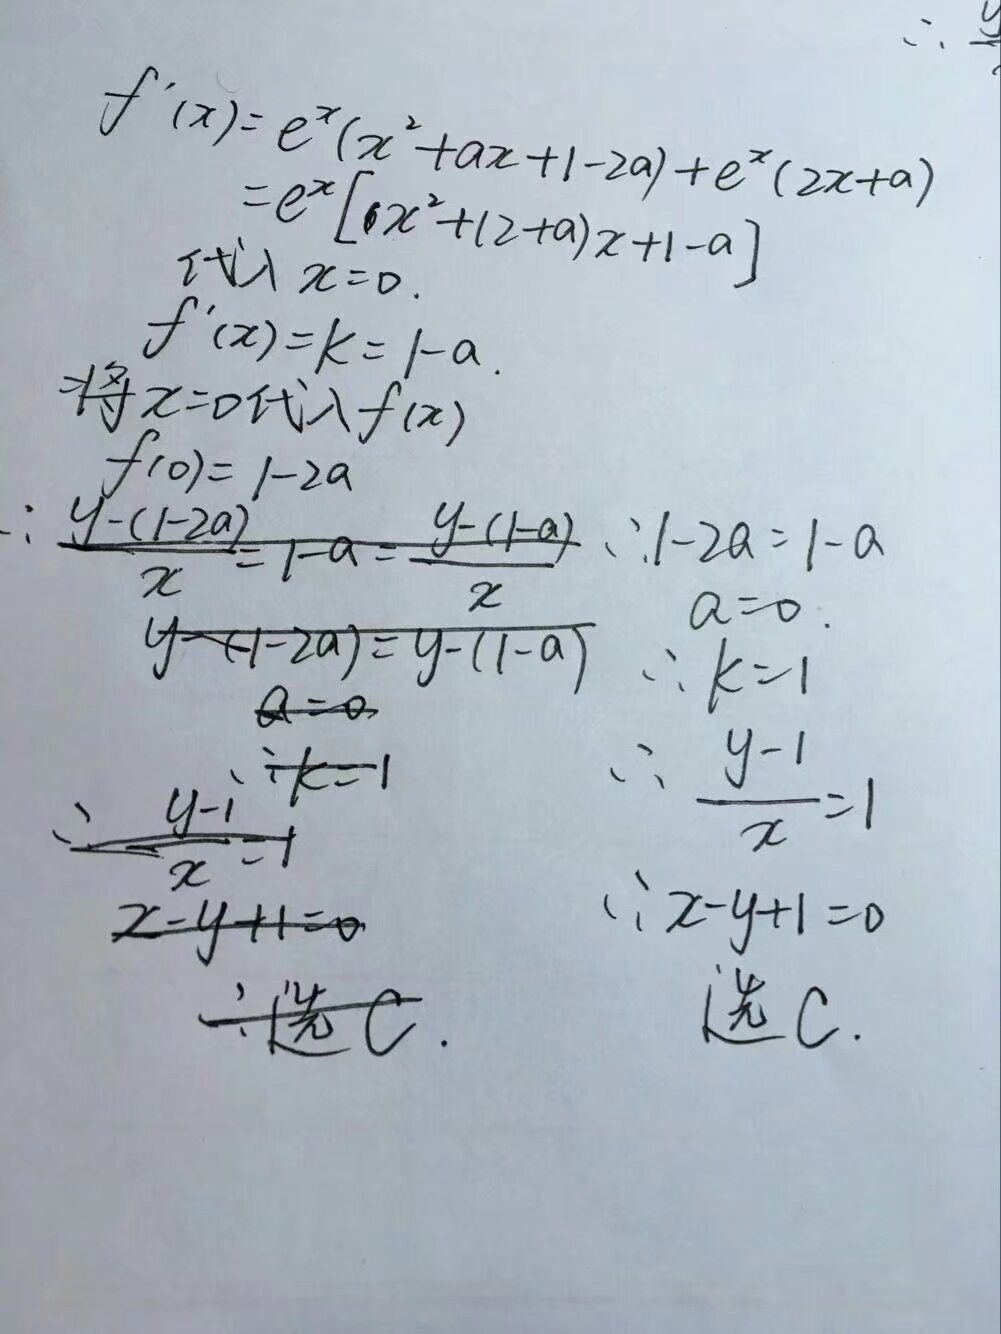 f'(x)=eˣ(x²+ax+1-2a)+eˣ(2x+a)
=eˣ[x²+(2+a)x+1-a]
代入x=0.
f'(x)=k=1-a.
将x=0代入f(x)
f(0)=1-2a
∴ (y-(1-2a))/x=1-a=(y-(1-a))/x
y-(1-2a)=y-(1-a)
a=0
∴k=1
∴ (y-1)/x=1
x-y+1=0
∴选C.
∴1-2a=1-a
a=0.
∴k=1
∴ (y-1)/x=1
∴x-y+1=0
选C.